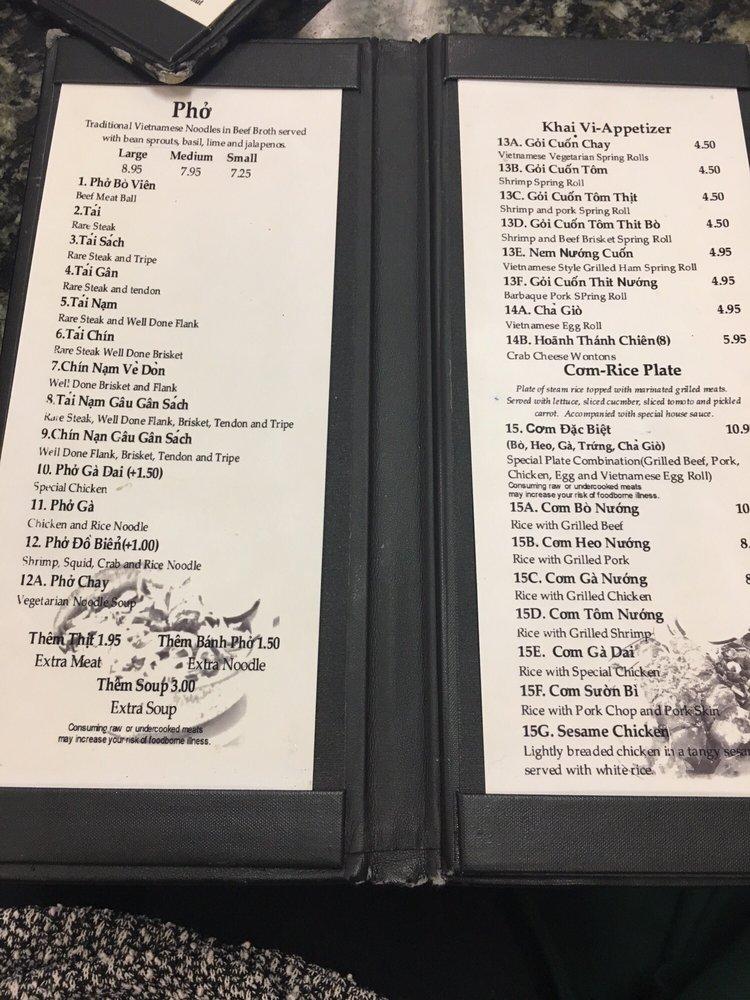 Phở
Traditional Vietnamese Noodles in Beef Broth served
with bean sprouts, basil, lime and jalapenos.
Large Medium Small
8.95 7.95 7.25
1. Phở Bò Viên
Beef Meat Ball
2.Tái
Rare Steak
3.Tái Sách
Rare Steak and Tripe
4.Tái Gân
Rare Steak and tendon
5.Tái Nạm
Rare Steak and Well Done Flank
6.Tái Chín
Rare Steak Well Done Brisket
7.Chín Nạm Vè Dòn
Well Done Brisket and Flank
8.Tái Nạm Gâu Gân Sách
Rare Steak, Well Done Flank, Brisket, Tendon and Tripe
9.Chín Nạn Gâu Gân Sách
Well Done Flank, Brisket, Tendon and Tripe
10. Phở Gà Dai (+1.50)
Special Chicken
11. Phở Gà
Chicken and Rice Noodle
12. Phở Đồ Biển(+1.00)
Shrimp, Squid, Crab and Rice Noodle
12A. Phở Chay
Vegetarian Noodle Soup
Thêm Thịt 1.95 Thêm Bánh Phở 1.50
Extra Meat Extra Noodle
Thêm Soup 3.00
Extra Soup
Consuming raw or undercooked meats
may increase your risk of foodborne illness.
Khai Vi-Appetizer
13A. Gỏi Cuốn Chay 4.50
Vietnamese Vegetarian Spring Rolls
13B. Gỏi Cuốn Tôm 4.50
Shrimp Spring Roll
13C. Gỏi Cuốn Tôm Thịt 4.50
Shrimp and pork Spring Roll
13D. Gỏi Cuốn Tôm Thit Bò 4.50
Shrimp and Beef Brisket Spring Roll
13E. Nem Nướng Cuốn 4.95
Vietnamese Style Grilled Ham Spring Roll
13F. Gỏi Cuốn Thit Nướng 4.95
Barbaque Pork SPring Roll
14A. Chả Giò 4.95
Vietnamese Egg Roll
14B. Hoãnh Thánh Chiên(8) 5.95
Crab Cheese Wontons
Cơm-Rice Plate
Plate of steam rice topped with marinated grilled meats.
Served with lettuce, sliced cucmber, sliced tomato and pickled
carrot. Accompanied with special house sauce.
15. Cơm Đặc Biệt 10.9
(Bò, Heo, Gà, Trứng, Chả Giò)
Special Plate Combination(Grilled Beef, Pork,
Chicken, Egg and Vietnamese Egg Roll)
Consuming raw or undercooked meats
may increase your risk of foodborne illness.
15A. Cơm Bò Nướng 10
Rice with Grilled Beef
15B. Cơm Heo Nướng 8.
Rice with Grilled Pork
15C. Cơm Gà Nướng 8
Rice with Grilled Chicken
15D. Cơm Tôm Nướng
Rice with Grilled Shrimp
15E. Cơm Gà Dai
Rice with Special Chicken
15F. Cơm Sườn Bì
Rice with Pork Chop and Pork Skin
15G. Sesame Chicken
Lightly breaded chicken in a tangy sesa
served with white rice.